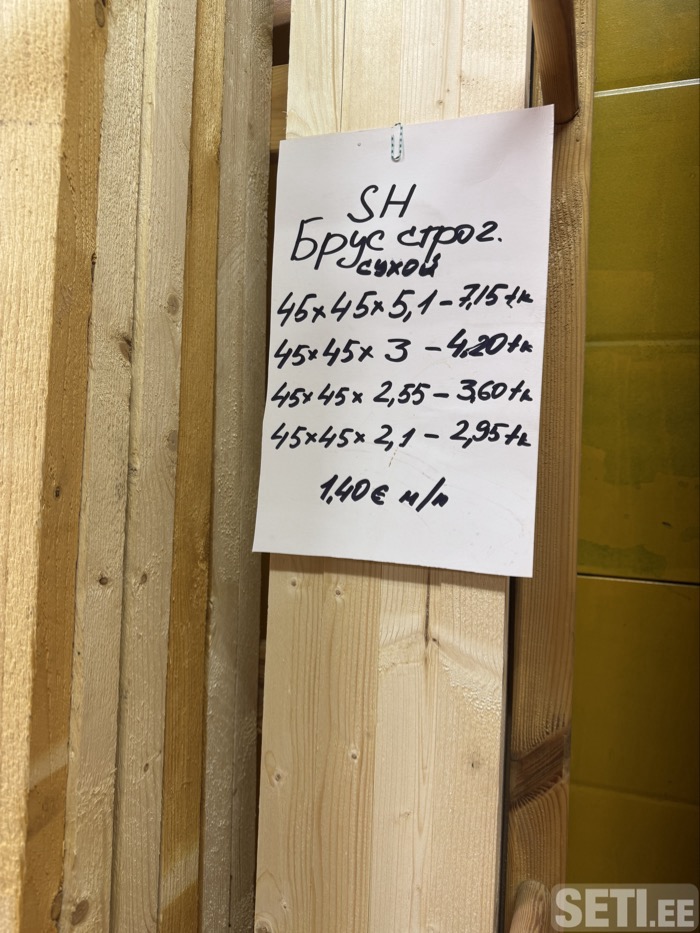 SH
Брус строг.
сухой
45×45×5,1 - 7,15 tk
45×45×3 - 4,20 tk
45×45×2,55 - 3,60 tk
45×45×2,1 - 2,95 tk
1,40€ м/п
SETI.EE